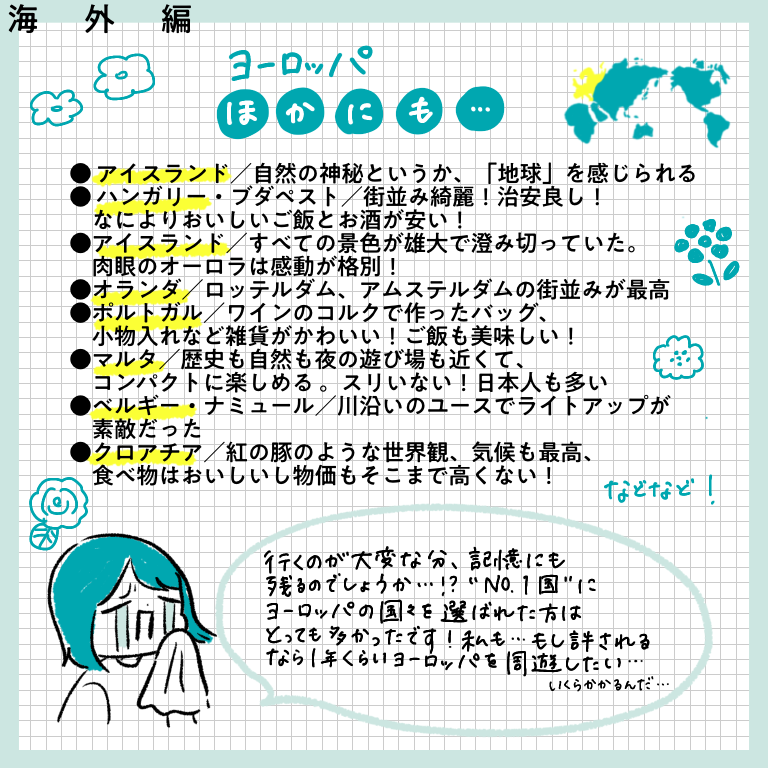 海外編
ヨーロッパ
ほかにも…
●アイスランド／自然の神秘というか、「地球」を感じられる
●ハンガリー・ブダペスト／街並み綺麗！治安良し！
なによりおいしいご飯とお酒が安い！
●アイスランド／すべての景色が雄大で澄み切っていた。
肉眼のオーロラは感動が格別！
●オランダ／ロッテルダム、アムステルダムの街並みが最高
●ポルトガル／ワインのコルクで作ったバッグ、
小物入れなど雑貨がかわいい！ご飯も美味しい！
●マルタ／歴史も自然も夜の遊び場も近くて、
コンパクトに楽しめる。スリいない！日本人も多い
●ベルギー・ナミュール／川沿いのユースでライトアップが
素敵だった
●クロアチア／紅の豚のような世界観、気候も最高、
食べ物はおいしいし物価もそこまで高くない！
などなど！
行くのが大変な分、記憶にも
残るのでしょうか…!?"NO.1国"に
ヨーロッパの国々を選ばれた方は
とっても多かったです！私も…もし許される
なら1年くらいヨーロッパを周遊したい…
いくらかかるんだ…